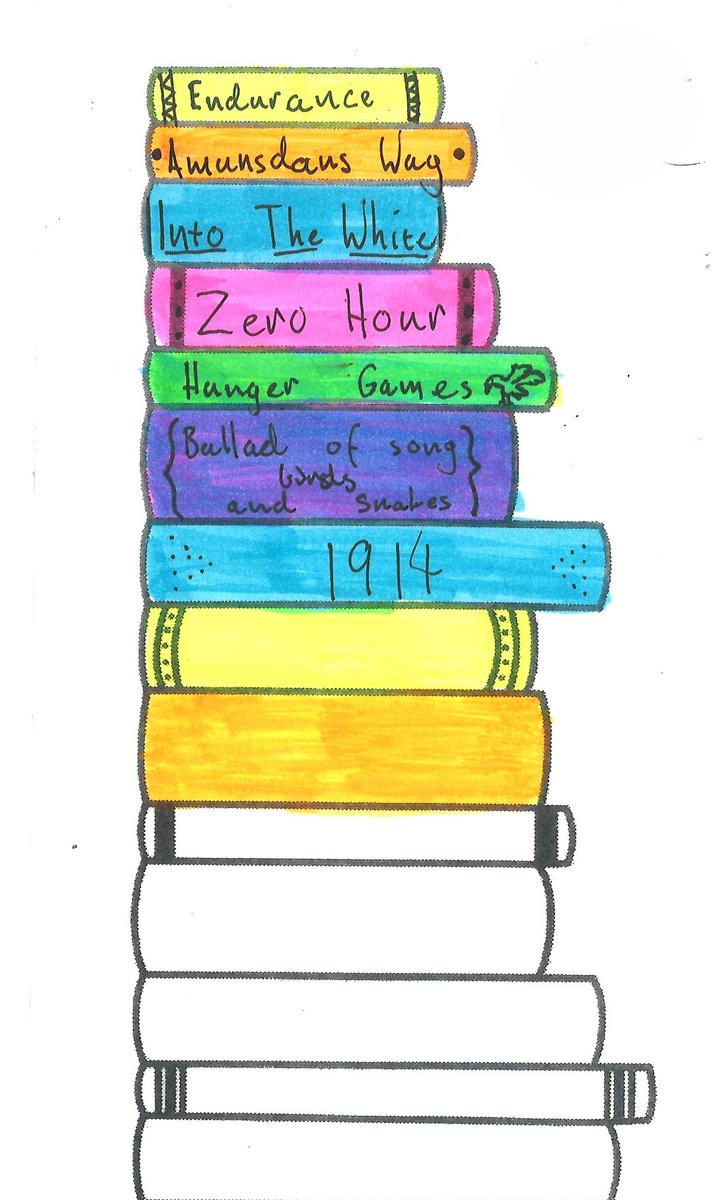 Endurance
Amunsdans Way
Into The White
Zero Hour
Hunger Games
Ballad of song
birds
and snakes
1914